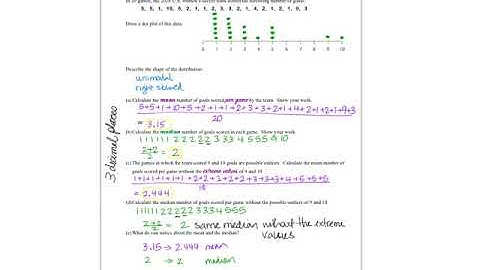 In 20 games, the 2016 U.S. women's soccer team scored the following number of goals:
5, 5, 1, 10, 5, 2, 1, 1, 2, 3, 3, 2, 1, 4, 2, 1, 2, 1, 9, 3
Draw a dot plot of this data.
0 1 2 3 4 5 6 7 8 9 10
Describe the shape of the distribution:
unimodal
right skewed
(a) Calculate the mean number of goals scored per game by the team. Show your work.
5+5+1+10+5+2+1+1+2+3+3+2+1+4+2+1+2+1+9+3
20
= 3.15
3 decimal places
(b) Calculate the median number of goals scored in each game. Show your work.
1 1 1 1 1 1 2 2 2 2 2 3 3 3 4 5 5 5 9 10
2+2
2
= 2
(c) The games in which the team scored 9 and 10 goals are possible outliers. Calculate the mean number of
goals scored per game without the extreme values of 9 and 10.
1+1+1+1+1+1+2+2+2+2+2+3+3+3+4+5+5+5
18
= 2.444
(d) Calculate the median number of goals scored per game without the possible outliers of 9 and 10.
1 1 1 1 1 1 2 2 2 2 2 3 3 3 4 5 5 5
2+2
2
= 2 same median without the extreme
values
(e) What do you notice about the mean and the median?
3.15 → 2.444 mean
2 → 2 median